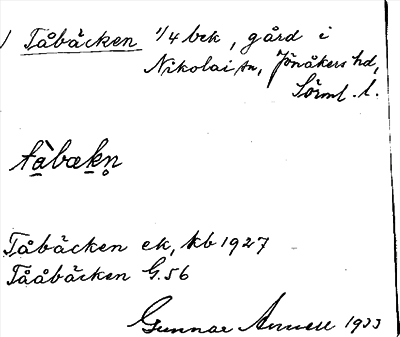 ) Tåbäcken 1/4 bek, gård i
Nikolai sn, Jönåkers hd,
Sörml. l.
tàbækn̥
Tåbäcken ek, kb 1927
Tååbäcken G.56
Gunnar 1933